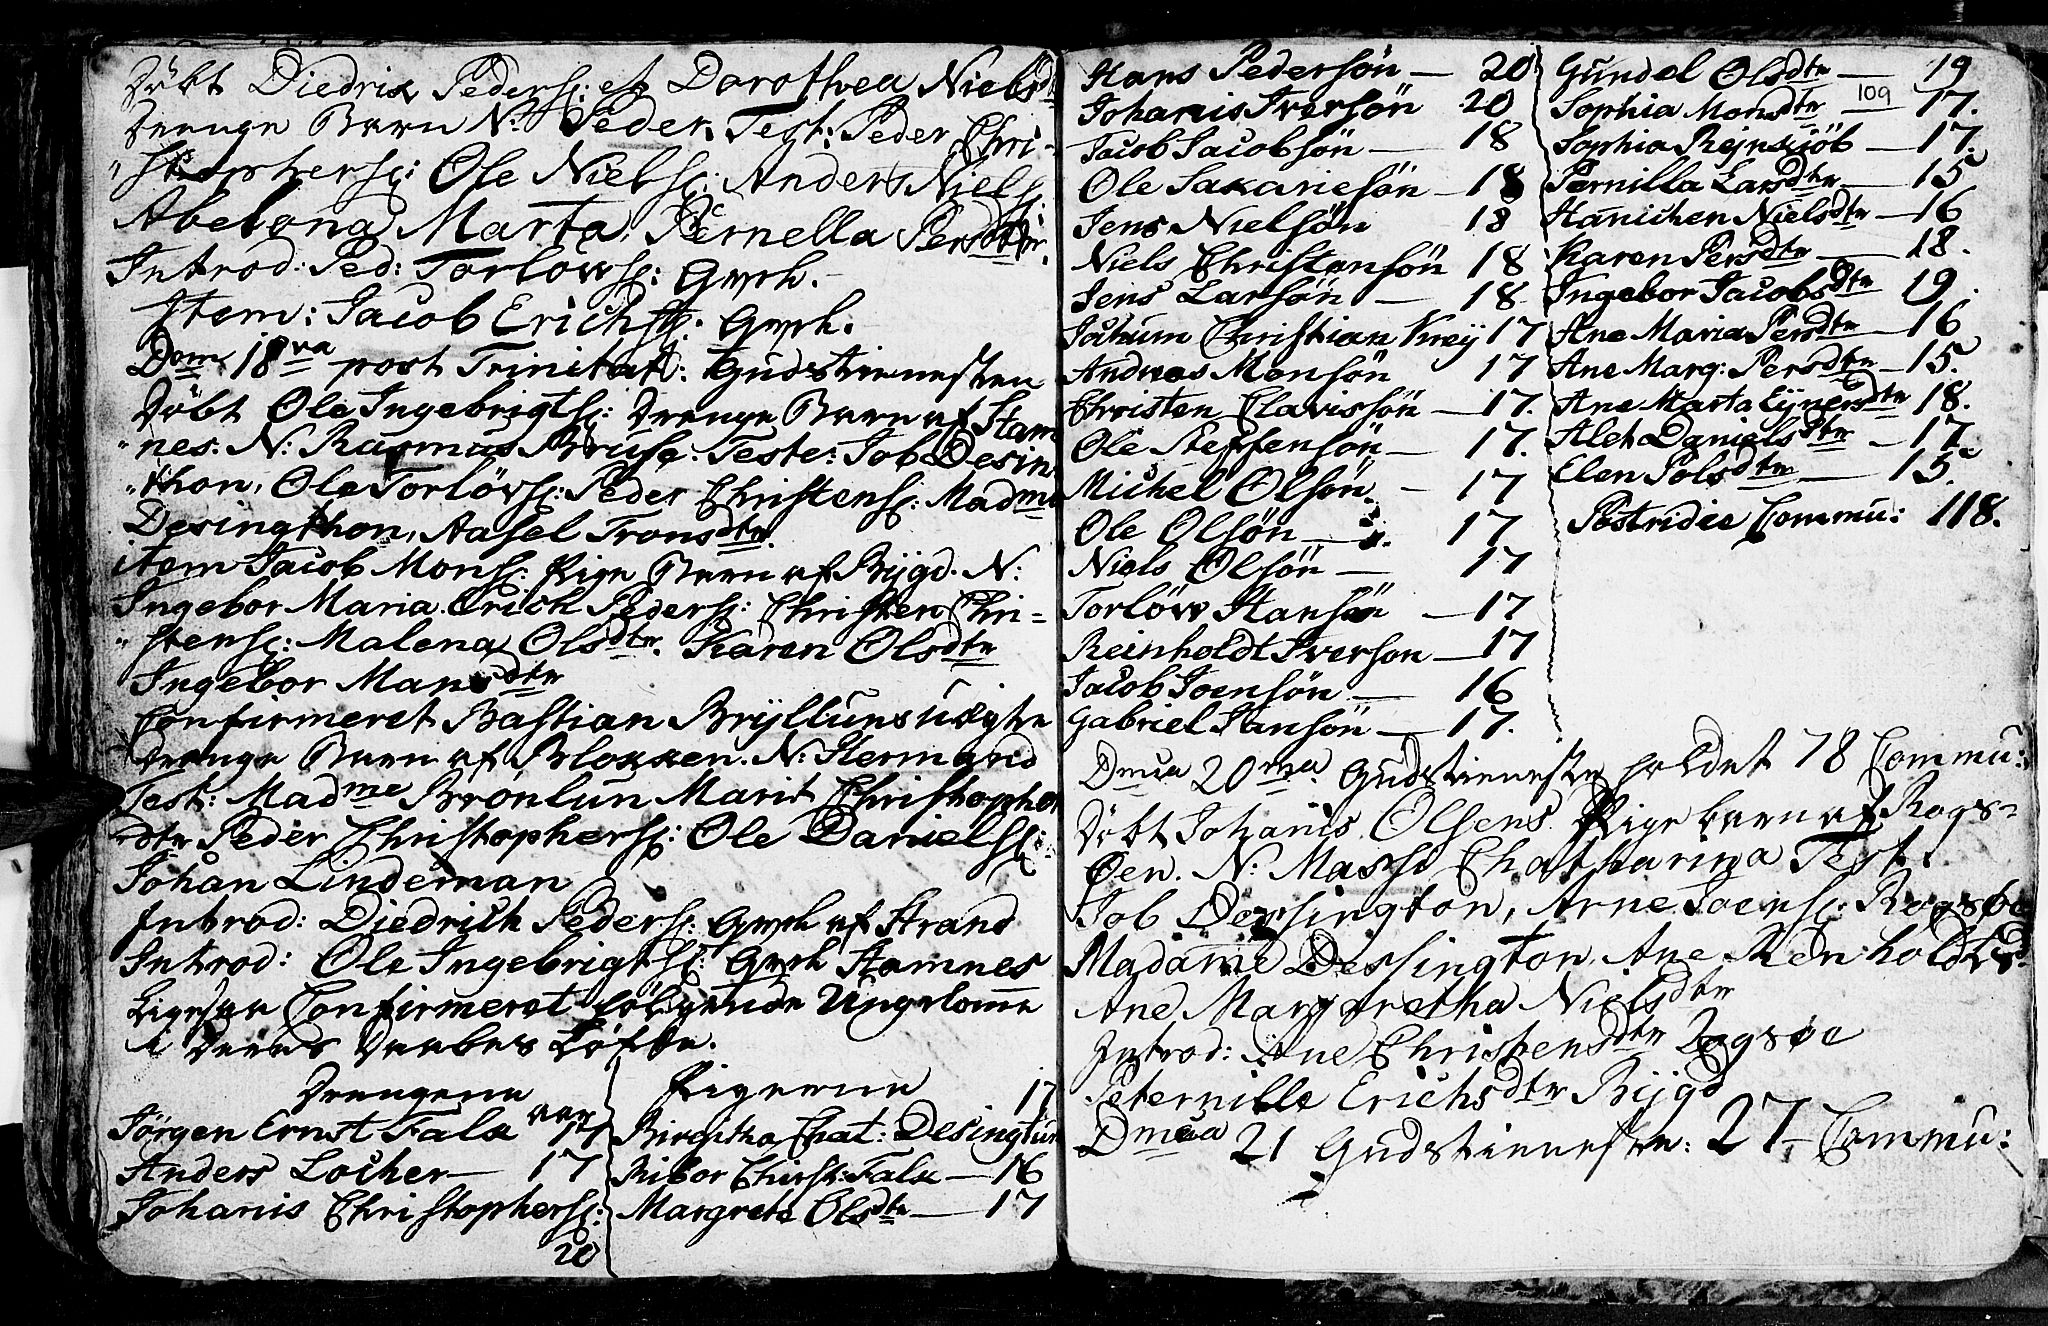 Döbt Diedrix Peders: et Dorothea Nielsdtr
Drenge Barn N: Peder. Test: Peder Chri-
"stophers: Ole Niels: Anders Niels:
Abelona, Marta, Pernella Persdttr.
Introd: Ped: Torlövs: Gvch.
Item: Jacob Erichs: Gvch.
Dom: 18va post Trinitat: Gudstienesten
Döbt Ole Ingebrigts: Drenge Barn af Stam
"nes. N: Rasmus Bruse. Teste: Job Desin
"thon, Ole Torlövs: Peder Christens: Madme
Desingthon, Aasel Tronsdtr.
item Jacob Mons: Pige Barn af Bygd. N:
Ingebor Maria. Erich Peders: Christen Chri=
"stens: Malena Olsdtr. Karen Olsdtr
Ingebor Mansdtr
Confirmeret Bastian Brylluns uægte
Drenge Barn af Bloxxen. N: Hermand
Test: Madme Brönlun Marit Christophers
dtr Peder Christophers: Ole Daniels:
Johan Lindeman
Introd: Diedrich Peders: Gvch af Strand
Introd: Ole Ingebrigts: Gvch Stamnes
Ligesaa Confirmeret fölgende Ungdomme
i Deres Daabes Löfte.
Drengene aar
Jörgen Ernst Falx 17
Anders Locher — 17
Johanis Christophers:
20
Pigerne
Birgitha Chat: Desingtun 17
Ribor Christ: Falx — 16
Margrete Olsdtr — 17
Hans Pedersön — 20
Johanis Iversön 20
Jacob Jacobsön — 18
Ole Saxariesön — 18
Jens Nielsön 18
Niels Christensön 18
Jens Larsön — 18
Jochum Christian Krey 17
Andreas Monsön 17
Christen Clavissön — 17.
Ole Steffensön — 17.
Michel Olsön. — 17
Ole Olsön — 17
Niels Olsön — 17
Torlöw Hansön — 17
Reinholdt Iverson — 17
Jacob Joensön — 16
Gabriel Hansön — 17.
Gundel Olsdtr — 19
109
Sophia Monsdtr — 17.
Sophia Rejnsjöb — 17.
Pernilla Larsdtr — 15
Hanichen Nielsdtr — 16
Karen Persdtr — 18.
Ingebor Jacobsdtr 19.
Ane Maria Persdtr — 16
Ane Marg: Persdtr — 15.
Ane Marta Ejnersdtr 18.
Alet Danielsdtr — 17.
Elen Polsdtr — 15.
Postridie Commu: 118.
Dmca 20ma Gudstieneste holdet 78 Commu:
Döbt Johanis Olsens Pige barn af Rogs=
Øen. N: Massi Chatharina Test:
Job Dessington, Arne Joens: Rogsöe
Madame Dessington, Ane Renholdtsd:
Ane Margaretha Nielsdtr
Introd: Ane Christensdtr Rogsøe
Peternille Erichsdtr Bygd
Dmca 21 Gudstienesten: 27 — Commu: